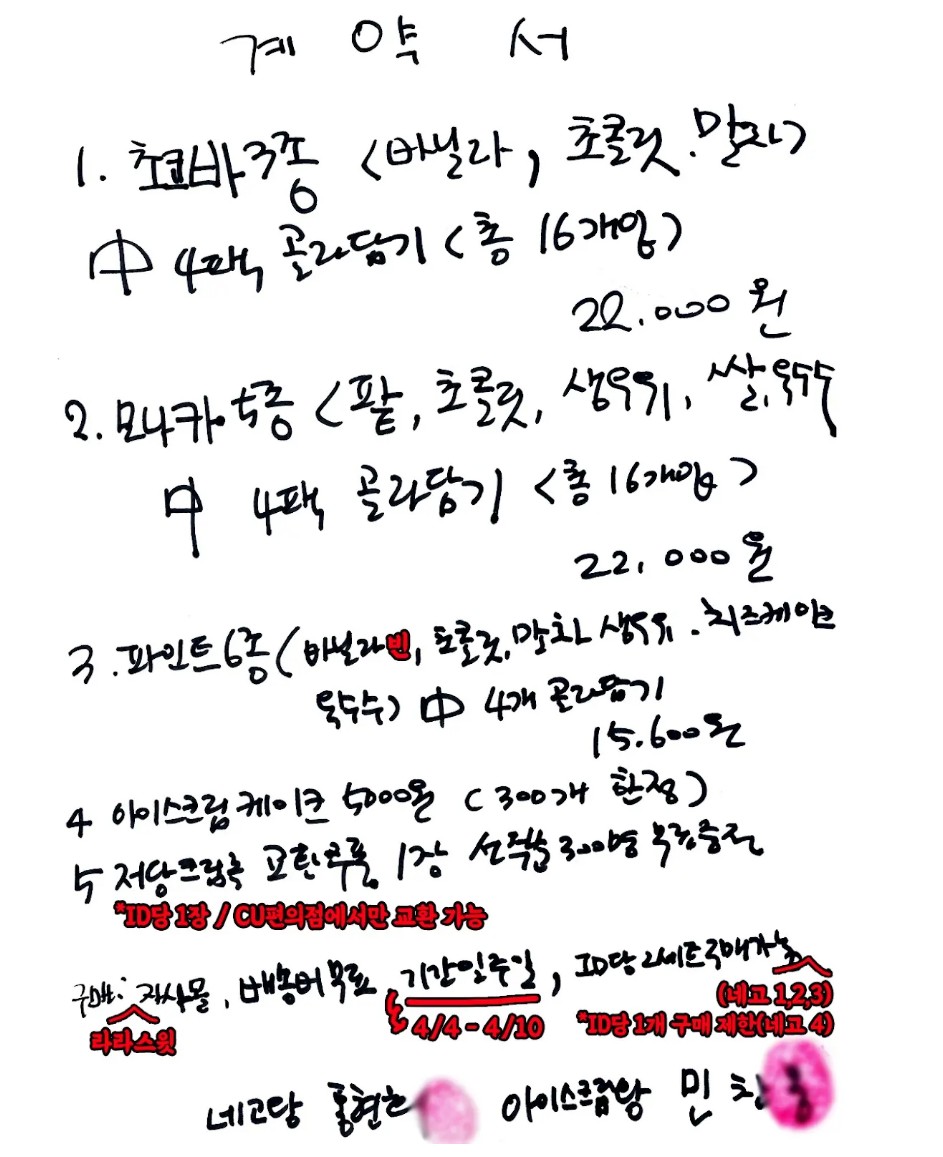 계 약 서
1. 초코바 3종 <바닐라, 초콜릿.말차>
中 4팩 골라담기 <총 16개입>
22.000원
2. 모나카 5종 <팥, 초콜릿, 생우유, 쌀, 옥수수
中 4팩 골라담기 <총 16개입>
22,000원
3. 파인트 6종 (바닐라빈, 초콜릿, 말차, 생우유. 치즈케이크
옥수수) 中 4개 골라담기
15.600원
4 아이스크림케이크 5000원 (300개 한정)
5 저당크림 교환쿠폰 1장 선착순 300명 무료증정
*ID당 1장 / CU편의점에서만 교환 가능
구매: 자사몰, 배송비 무료, 기간 일주일, ID당 2세트 구매가능
라라스윗
4/4 - 4/10
(네고 1,2,3)
*ID당 1개 구매 제한(네고 4)
네고왕 홍현희 아이스크림왕 민 찬홍